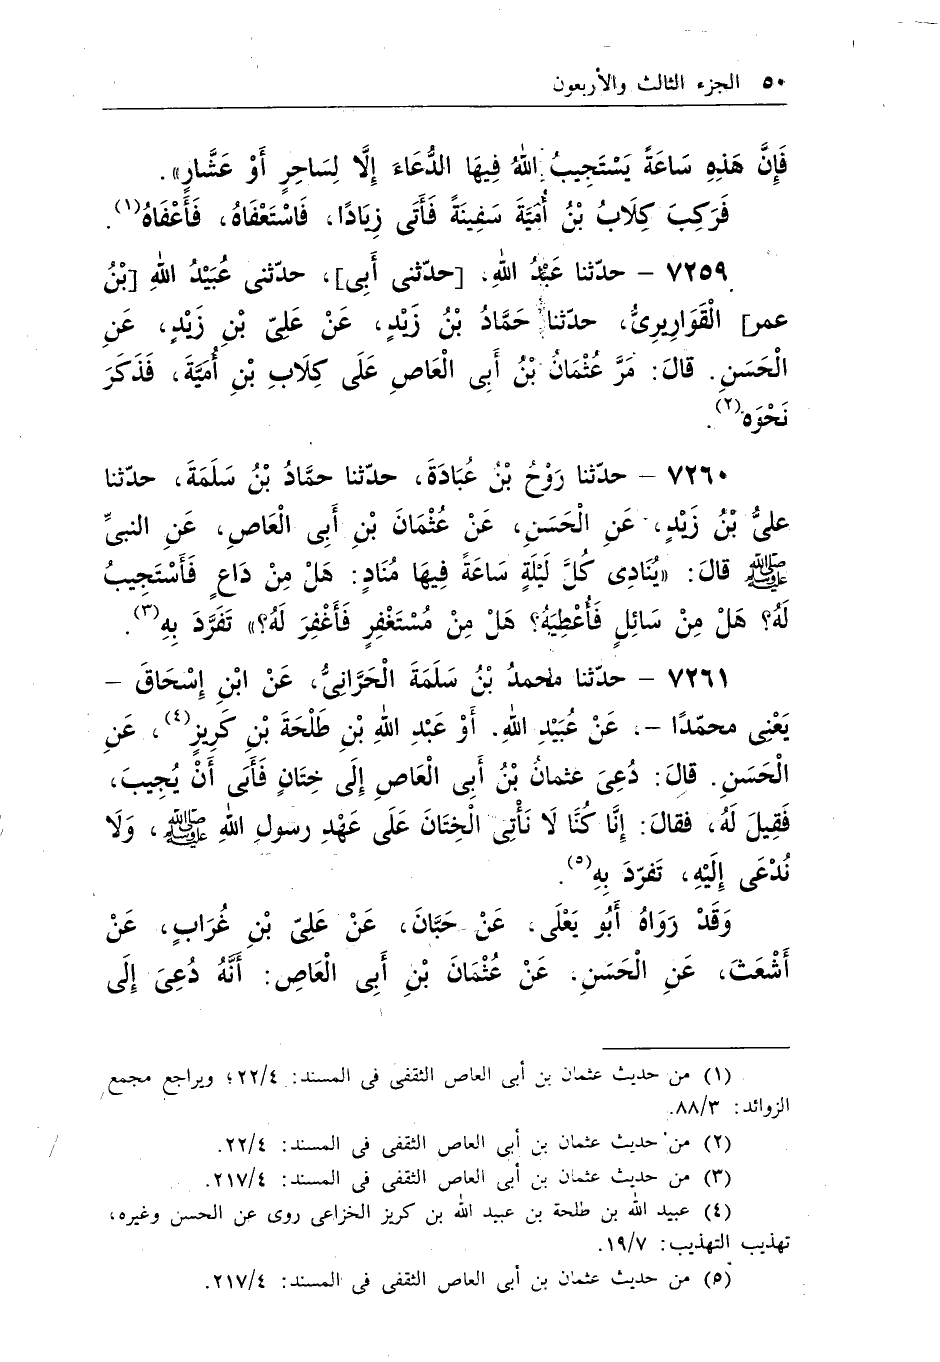 ٥٠ الجزء الثالث والأربعون
فَإِنَّ هَذِهِ سَاعَةً يَسْتَجِيبُ اللهُ فِيهَا الدُّعَاءَ إِلَّا لِسَاحِرٍ أَوْ عَشَّارٍ».
فَرَكِبَ كِلَابُ بْنُ أُمَيَّةَ سَفِينَةً فَأَتَى زِيَادًا، فَاسْتَعْفَاهُ، فَأَعْفَاهُ(١).
٧٢٥٩ - حدّثنا عَبْدُ اللهِ، [حدّثنى أَبِى]، حدّثنى عُبَيْدُ اللهِ [بْنُ
عمر] الْقَوَارِيرِىُّ، حدّثنا حَمَّادُ بْنُ زَيْدٍ، عَنْ عَلِىّ بْنِ زَيْدٍ، عَنِ
الْحَسَنِ. قالَ: مَرَّ عُثْمَانُ بْنُ أَبِى الْعَاصِ عَلَى كِلَابِ بْنِ أُمَيَّةَ، فَذَكَرَ
نَحْوَه(٢).
٧٢٦٠ - حدّثنا رَوْحُ بْنُ عُبَادَةَ، حدّثنا حمَّادُ بْنُ سَلَمَةَ، حدّثنا
علىُّ بْنُ زَيْدٍ، عَنِ الْحَسَنِ، عَنْ عُثْمَانَ بْنِ أَبِى الْعَاصِ، عَنِ النبىِّ
ﷺ قالَ: «يُنَادِى كُلَّ لَيْلَةٍ سَاعَةً فِيهَا مُنَادٍ: هَلْ مِنْ دَاعٍ فَأَسْتَجِيبُ
لَهُ؟ هَلْ مِنْ سَائِلٍ فَأُعْطِيَهُ؟ هَلْ مِنْ مُسْتَغْفِرٍ فَأَغْفِرَ لَهُ؟» تَفَرَّدَ بِهِ(٣).
٧٢٦١ - حدّثنا محمدُ بْنُ سَلَمَةَ الْحَرَّانِىُّ، عَنْ ابْنِ إِسْحَاقَ -
يَعْنِى محمّدًا -، عَنْ عُبَيْدِ اللهِ. أَوْ عَبْدِ اللهِ بْنِ طَلْحَةَ بْنِ كَرِيزٍ(٤)، عَنِ
الْحَسَنِ. قالَ: دُعِىَ عثمانُ بْنُ أَبِى الْعَاصِ إِلَى خِتَانٍ فَأَبَى أَنْ يُجِيبَ،
فَقِيلَ لَهُ، فقالَ: إِنَّا كُنَّا لَا نَأْتِى الْخِتَانَ عَلَى عَهْدِ رسولِ اللهِ ﷺ، وَلَا
نُدْعَى إِلَيْهِ، تَفرّدَ بِهِ(٥).
وَقَدْ رَوَاهُ أَبُو يَعْلَى، عَنْ حَبَّانَ، عَنْ عَلِىّ بْنِ غُرَابٍ، عَنْ
أَشْعَثَ، عَنِ الْحَسَنِ. عَنْ عُثْمَانَ بْنِ أَبِى الْعَاصِ: أَنَّهُ دُعِىَ إِلَى
(١) من حديث عثمان بن أبى العاص الثقفى فى المسند: ٢٢/٤؛ ويراجع مجمع
الزوائد: ٨٨/٣.
(٢) من حديث عثمان بن أبى العاص الثقفى فى المسند: ٢٢/٤.
(٣) من حديث عثمان بن أبى العاص الثقفى فى المسند: ٢١٧/٤.
(٤) عبيد الله بن طلحة بن عبيد الله بن كريز الخزاعى روى عن الحسن وغيره،
تهذيب التهذيب: ١٩/٧.
(٥) من حديث عثمان بن أبى العاص الثقفى فى المسند: ٢١٧/٤.